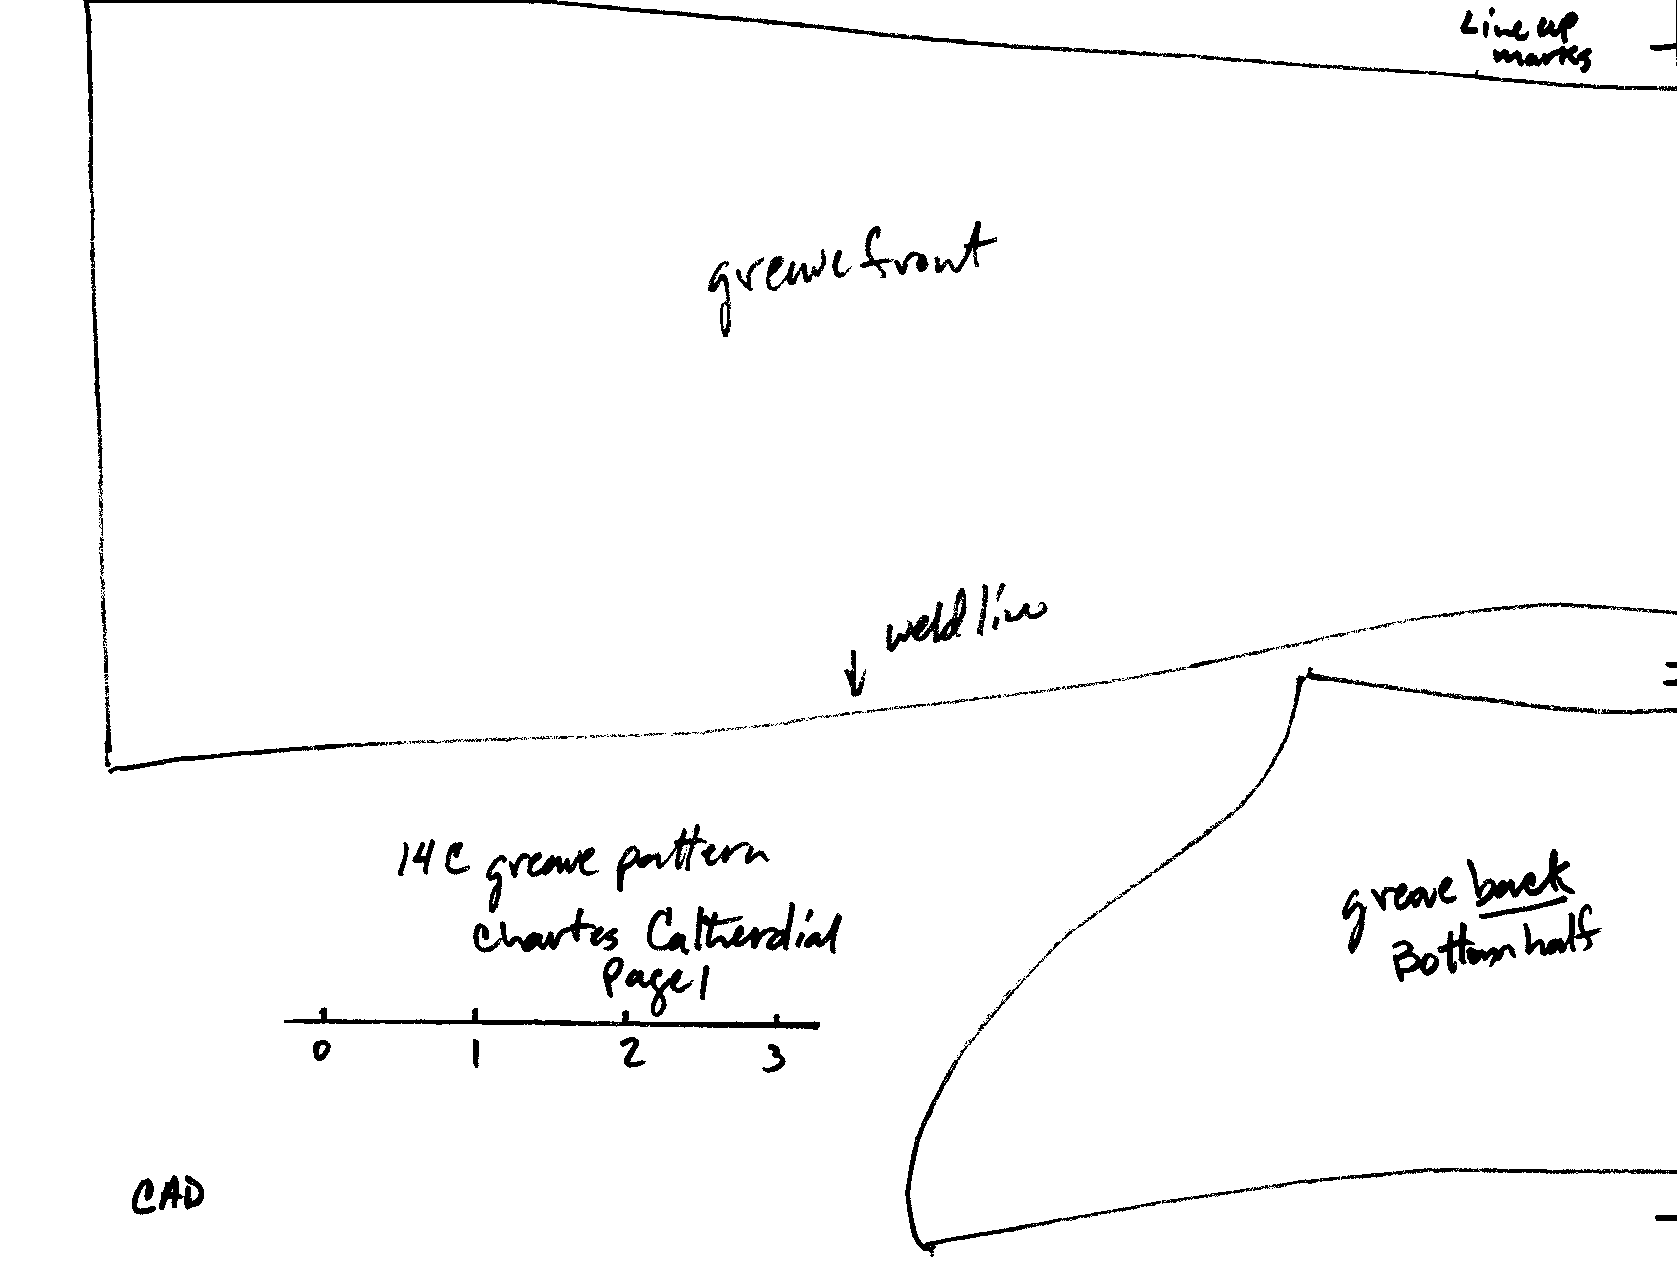 Line up
marks
greave front
weld line
14C greave pattern
chartes Catherdial
Page 1
0 1 2 3
greave back
Bottom half
CAD